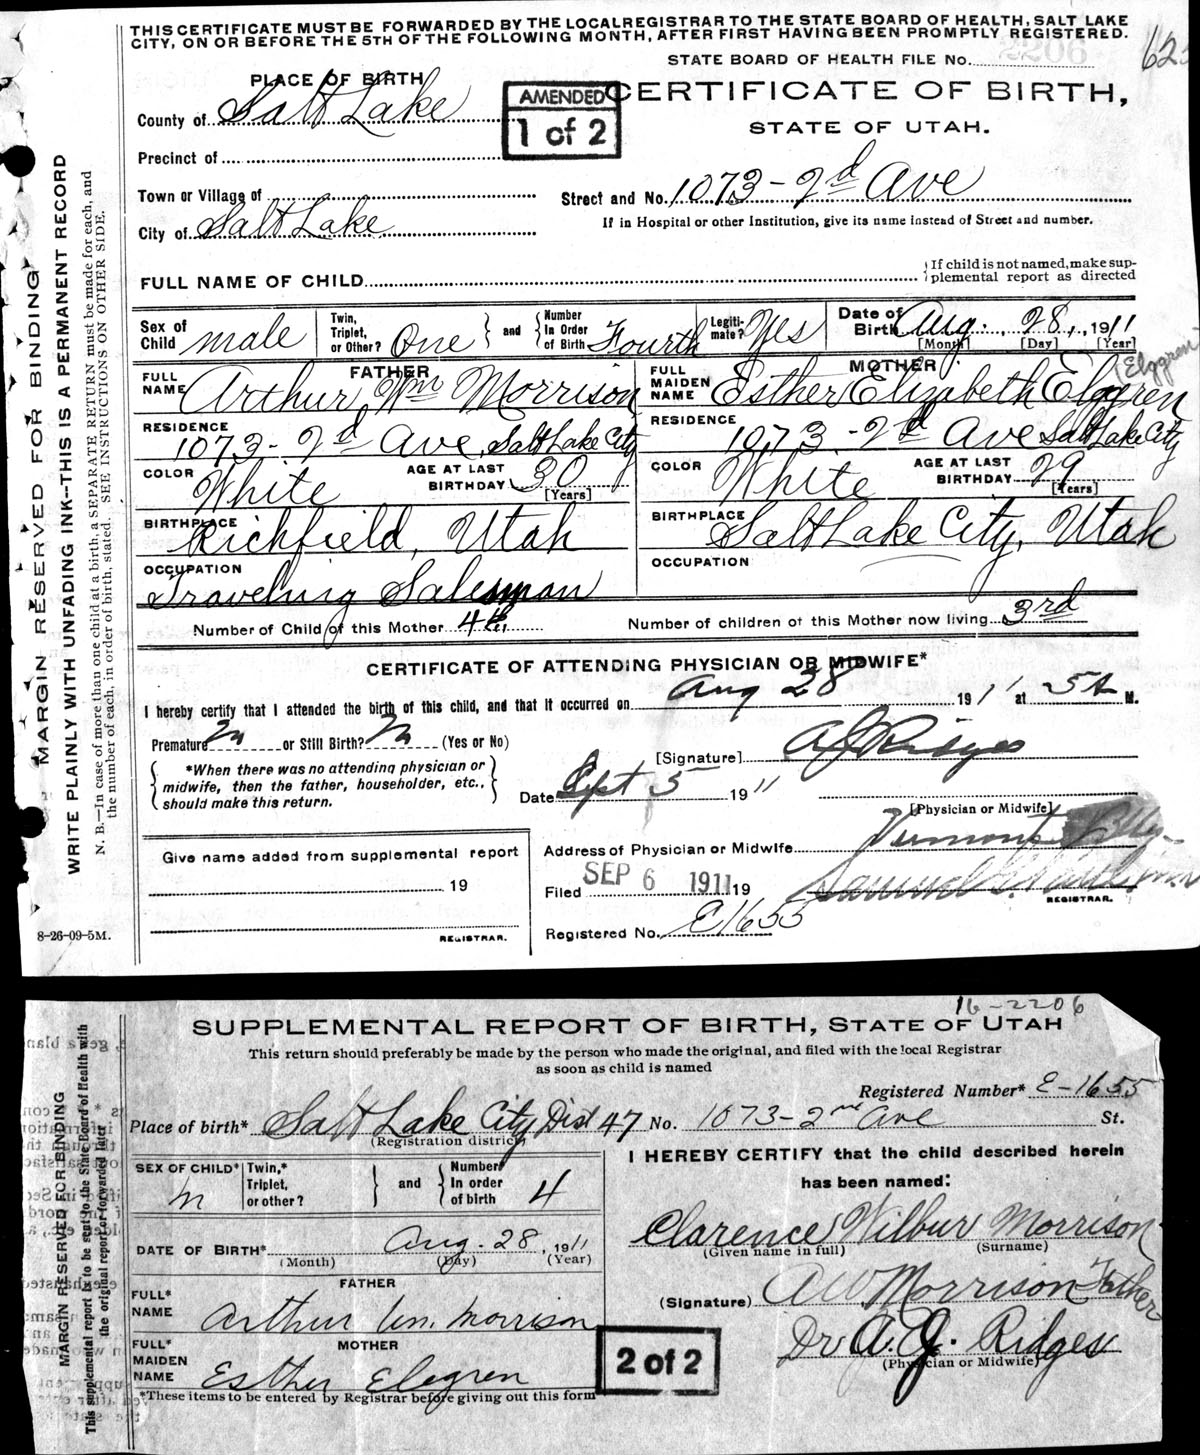 THIS CERTIFICATE MUST BE FORWARDED BY THE LOCAL REGISTRAR TO THE STATE BOARD OF HEALTH, SALT LAKE
CITY, ON OR BEFORE THE 5TH OF THE FOLLOWING MONTH, AFTER FIRST HAVING BEEN PROMPTLY REGISTERED.
STATE BOARD OF HEALTH FILE No. 2206
PLACE OF BIRTH
AMENDED
1 of 2
CERTIFICATE OF BIRTH,
STATE OF UTAH.
County of Salt Lake
Precinct of
Town or Village of
Street and No. 1073 - 2d Ave
City of Salt Lake
If in Hospital or other Institution, give its name instead of Street and number.
FULL NAME OF CHILD
If child is not named, make sup-
plemental report as directed
Sex of Child male
Twin, Triplet, or Other? One and Number In Order of Birth Fourth
Legiti-mate? Yes
Date of Birth Aug. 28, 1911
[Month] [Day] [Year]
FATHER
MOTHER
FULL NAME Arthur Wm Morrison
FULL MAIDEN NAME Esther Elizabeth Elggren
Elggren
RESIDENCE 1073 - 2d Ave, Salt Lake City
RESIDENCE 1073 - 2d Ave Salt Lake City
COLOR White AGE AT LAST BIRTHDAY 30 [Years]
COLOR White AGE AT LAST BIRTHDAY 29 [Years]
BIRTHPLACE Richfield, Utah
BIRTHPLACE Salt Lake City, Utah
OCCUPATION Traveling Salesman
OCCUPATION
Number of Child of this Mother 4th
Number of children of this Mother now living 3rd
CERTIFICATE OF ATTENDING PHYSICIAN OR MIDWIFE*
I hereby certify that I attended the birth of this child, and that it occurred on Aug 28 1911 at 5 A M.
Premature? No or Still Birth? No (Yes or No)
[Signature] A J Ridges
*When there was no attending physician or
midwife, then the father, householder, etc.,
should make this return.
Date Sept 5 1911
[Physician or Midwife]
Give name added from supplemental report
19
REGISTRAR.
Address of Physician or Midwife Vermont Bldg.
Filed SEP 6 1911 19
REGISTRAR.
Registered No. E1655
8-26-09-5M.
MARGIN RESERVED FOR BINDING
WRITE PLAINLY WITH UNFADING INK--THIS IS A PERMANENT RECORD
N. B.—In case of more than one child at a birth, a SEPARATE RETURN must be made for each, and
the number of each, in order of birth, stated. SEE INSTRUCTIONS ON OTHER SIDE.
16-2206
SUPPLEMENTAL REPORT OF BIRTH, STATE OF UTAH
This return should preferably be made by the person who made the original, and filed with the local Registrar
as soon as child is named
Registered Number* E-1655
Place of birth* Salt Lake City, Dist 47 No. 1073-2nd Ave St.
(Registration district)
SEX OF CHILD* M
Twin,* Triplet, or other? and Number In order of birth 4
I HEREBY CERTIFY that the child described herein
has been named:
DATE OF BIRTH* Aug. 28, 1911
(Month) (Day) (Year)
Clarence Wilbur Morrison
(Given name in full) (Surname)
FATHER
FULL* NAME Arthur Wm. Morrison
(Signature) AW Morrison Father
MOTHER
FULL* MAIDEN NAME Esther Elegren
2 of 2
Dr A. J. Ridges
(Physician or Midwife)
*These items to be entered by Registrar before giving out this form
MARGIN RESERVED FOR BINDING
This supplemental report is to be sent to the State Board of Health with
the original report or forwarded later